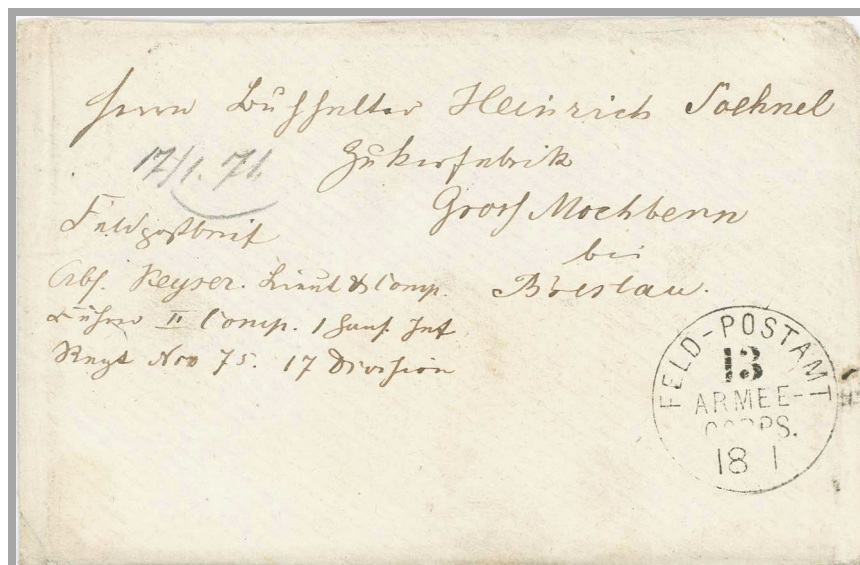 Herrn Buchhalter Heinrich Soehnel
Zukerfabrik
17/1. 71.
Gross Mochbern
Feldpostbrief
bei
Abs. Keyser. Lieut & Comp.
Breslau.
Führer II Comp. 1 Hans Inf
Regt Nro 75. 17 Division
FELD-POSTAMT
13
ARMEE-
CORPS.
18 1